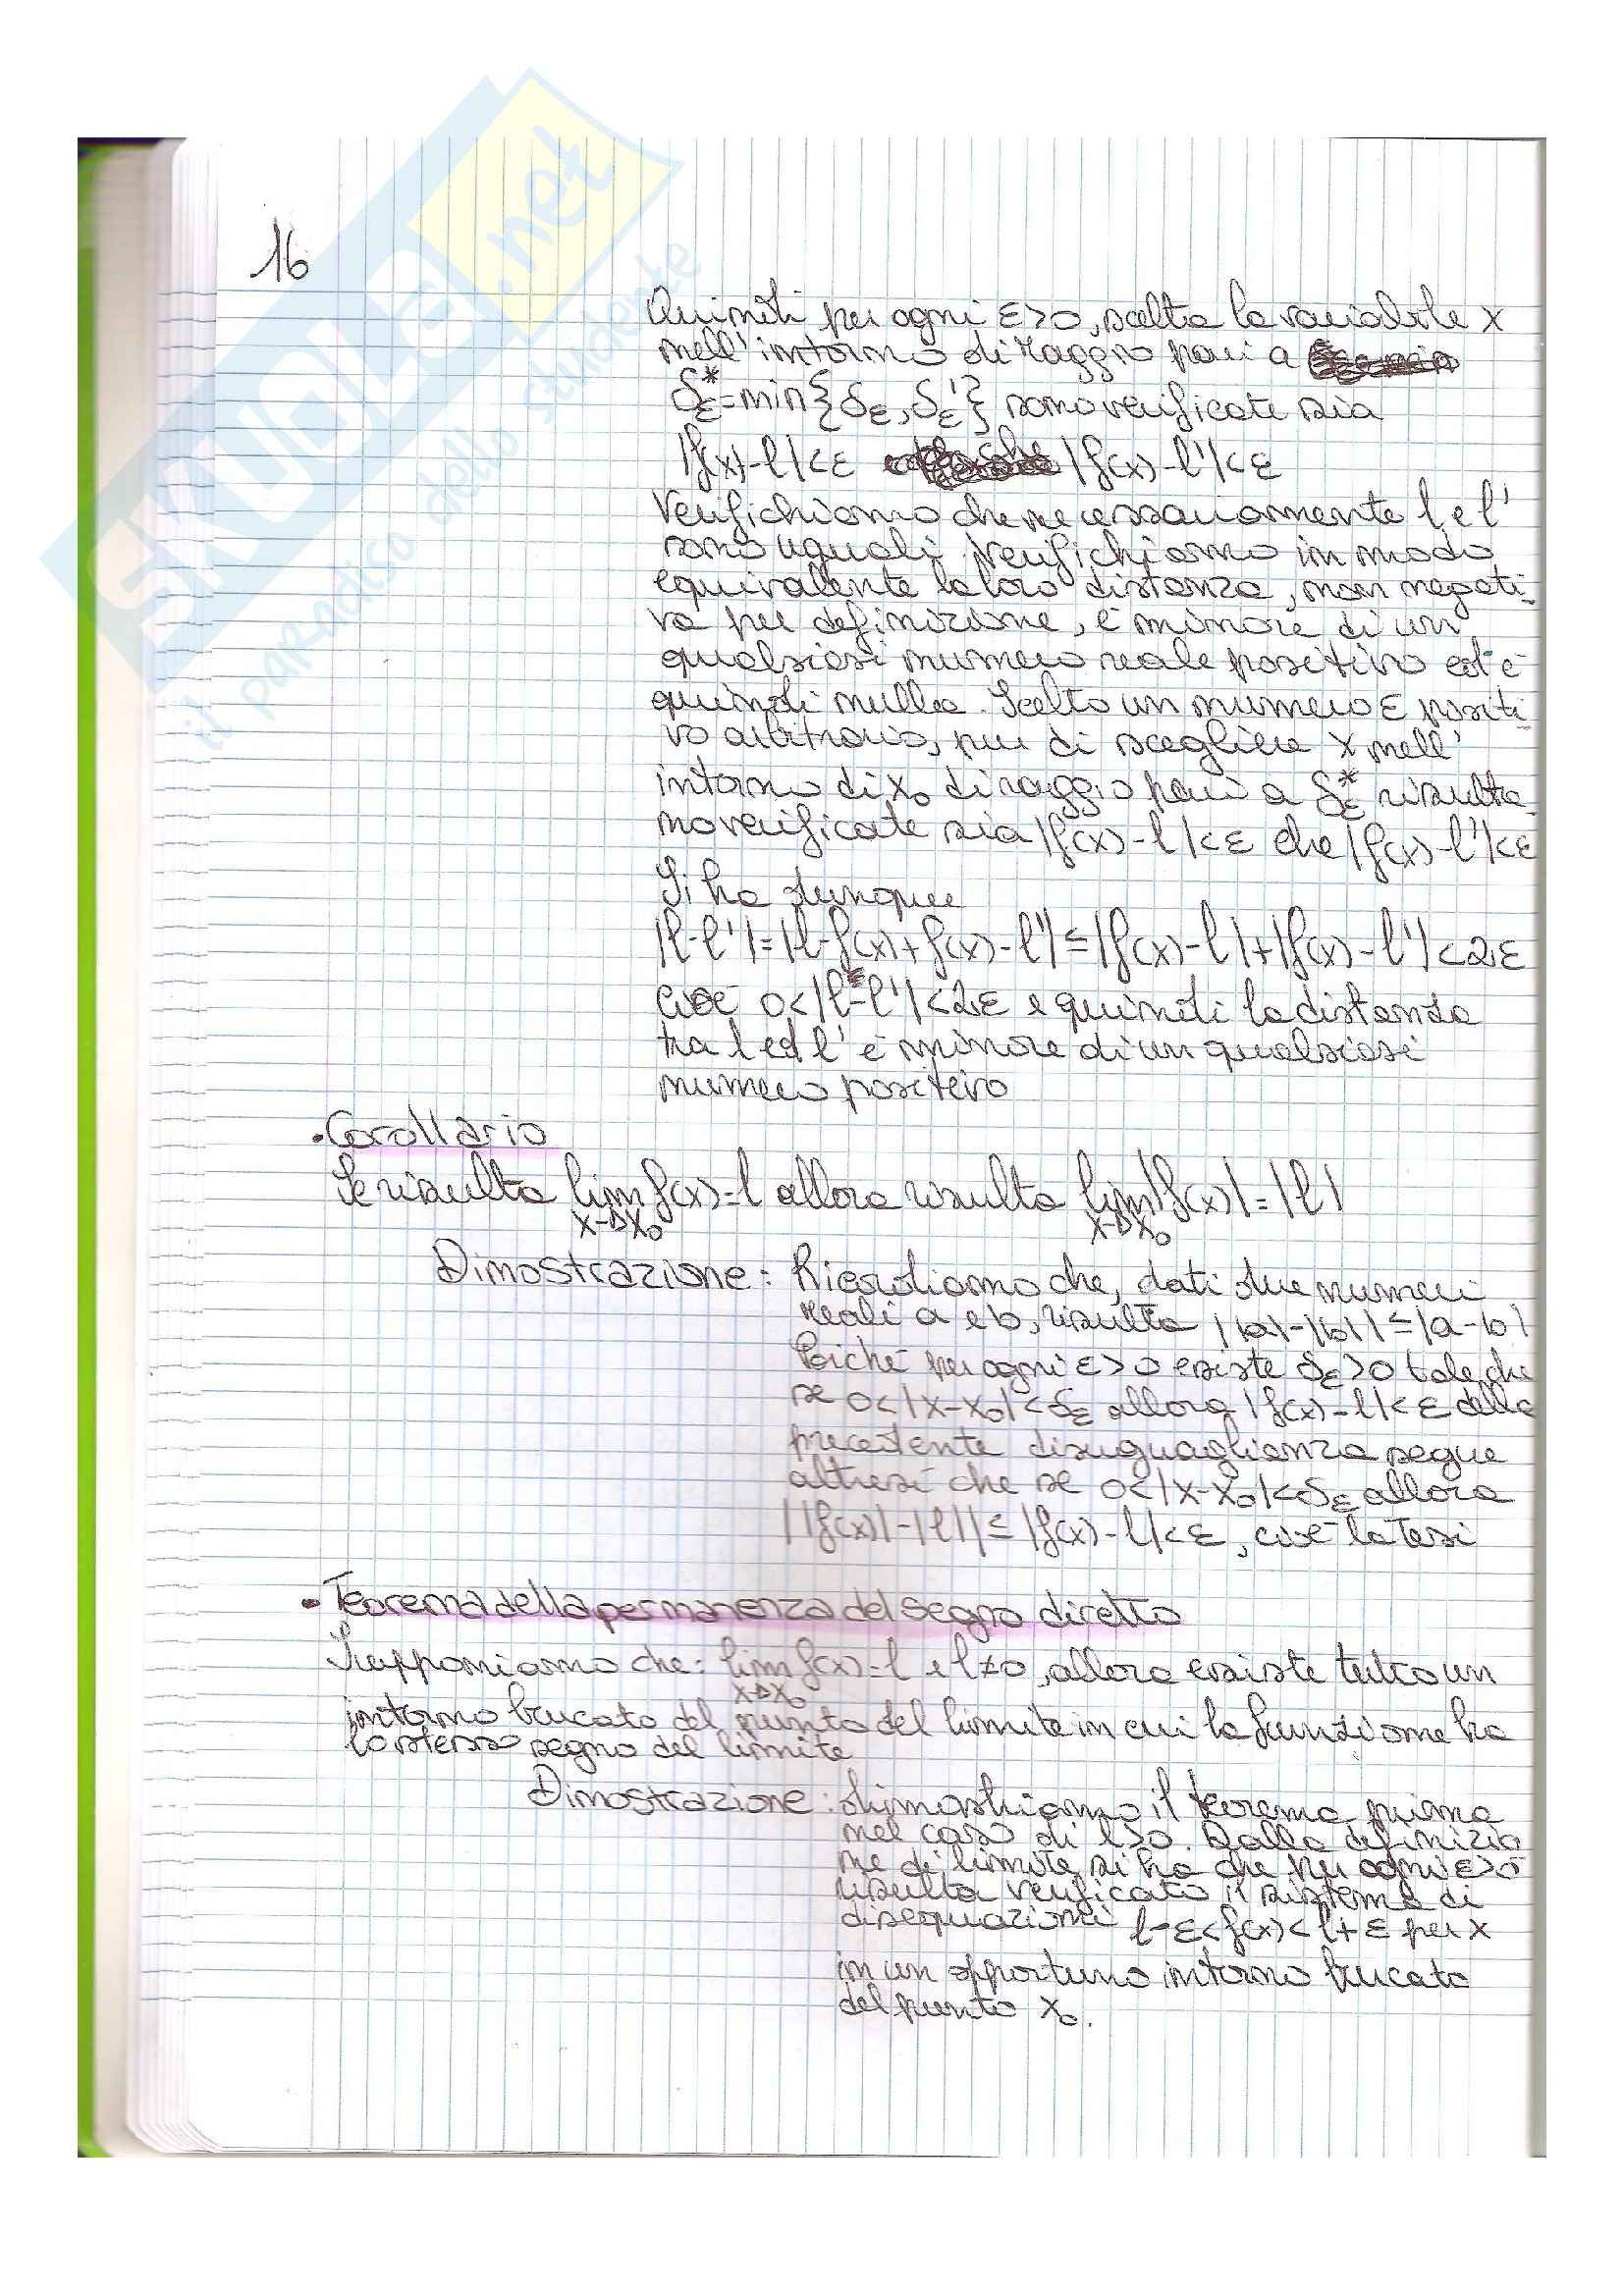 SKUOLA.net
il paradiso dello studente
16
Quindi per ogni ε>0, scelta la variabile x
nell'intorno di raggio pari a
δ*ε=min{δε, δ'ε} sono verificate sia
|f(x)-l|<ε |f(x)-l'|<ε
Verifichiamo che necessariamente l e l'
sono uguali, verifichiamo in modo
equivalente la loro distanza, non negati-
va per definizione, è minore di un
qualsiasi numero reale positivo ed è
quindi nulla. Scelto un numero ε positi
vo arbitrario, pur di scegliere x nell'
intorno di x₀ di raggio pari a δ*ε risulta
no verificate sia |f(x)-l|<ε che |f(x)-l'|<ε
Si ha dunque
|l-l'|=|l-f(x)+f(x)-l'|≤|f(x)-l|+|f(x)-l'|<2ε
cioè 0<|l-l'|<2ε e quindi la distanza
tra l ed l' è minore di un qualsiasi
numero positivo
• Corollario
Se risulta lim f(x)=l allora risulta lim|f(x)|=|l|
x→x₀ x→x₀
Dimostrazione: Ricordiamo che, dati due numeri
reali a e b, risulta ||a|-|b||≤|a-b|
Poiché per ogni ε>0 esiste δε>0 tale che
se 0<|x-x₀|<δε allora |f(x)-l|<ε dalla
precedente disuguaglianza segue
altresì che se 0<|x-x₀|<δε allora
||f(x)|-|l||≤|f(x)-l|<ε, cioè la tesi
• Teorema della permanenza del segno diretto
Supponiamo che: lim f(x)=l e l≠0, allora esiste tutto un
x→x₀
intorno bucato del punto del limite in cui la funzione ha
lo stesso segno del limite
Dimostrazione: dimostriamo il teorema prima
nel caso di l>0. Dalla definizio
ne di limite si ha che per ogni ε>0
risulta verificato il sistema di
disequazioni l-ε<f(x)<l+ε per x
in un opportuno intorno bucato
del punto x₀.